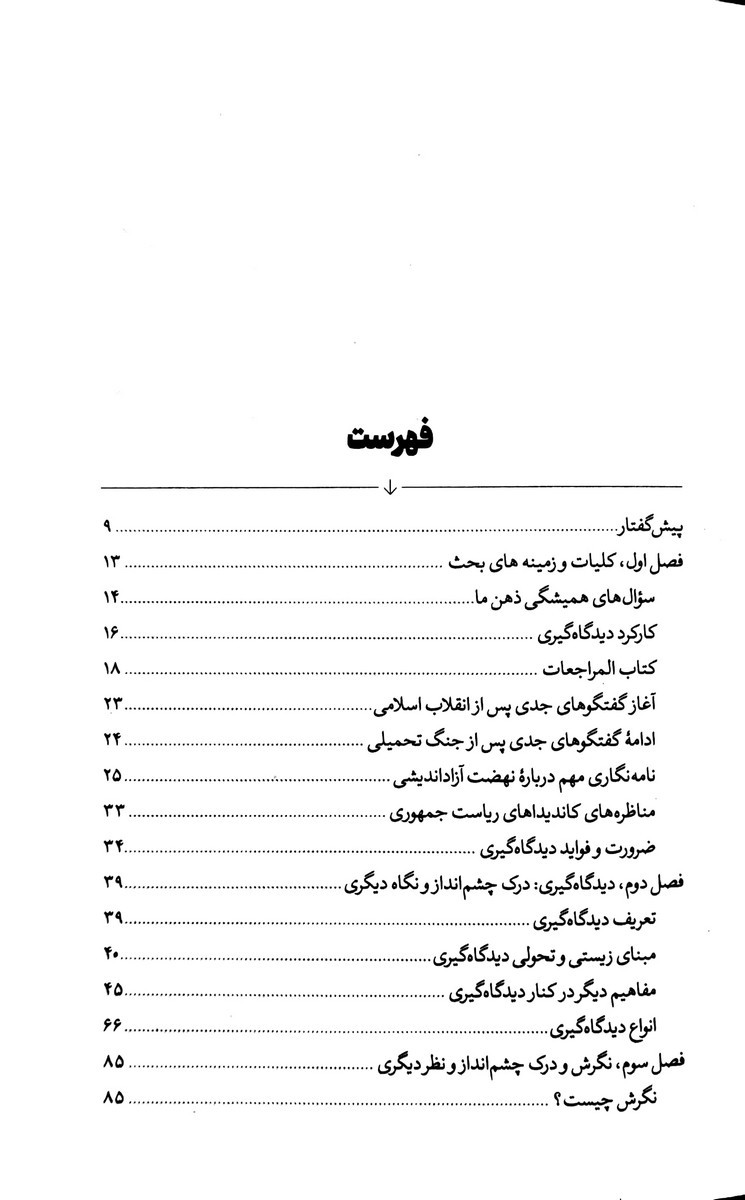 فهرست
پیش‌گفتار ۹
فصل اول، کلیات و زمینه های بحث ۱۳
سؤال‌های همیشگی ذهن ما ۱۴
کارکرد دیدگاه‌گیری ۱۶
کتاب المراجعات ۱۸
آغاز گفتگوهای جدی پس از انقلاب اسلامی ۲۳
ادامۀ گفتگوهای جدی پس از جنگ تحمیلی ۲۴
نامه‌نگاری مهم دربارۀ نهضت آزاداندیشی ۲۵
مناظره‌های کاندیداهای ریاست جمهوری ۳۳
ضرورت و فواید دیدگاه‌گیری ۳۴
فصل دوم، دیدگاه‌گیری: درک چشم‌انداز و نگاه دیگری ۳۹
تعریف دیدگاه‌گیری ۳۹
مبنای زیستی و تحولی دیدگاه‌گیری ۴۰
مفاهیم دیگر در کنار دیدگاه‌گیری ۴۵
انواع دیدگاه‌گیری ۶۶
فصل سوم، نگرش و درک چشم‌انداز و نظر دیگری ۸۵
نگرش چیست؟ ۸۵